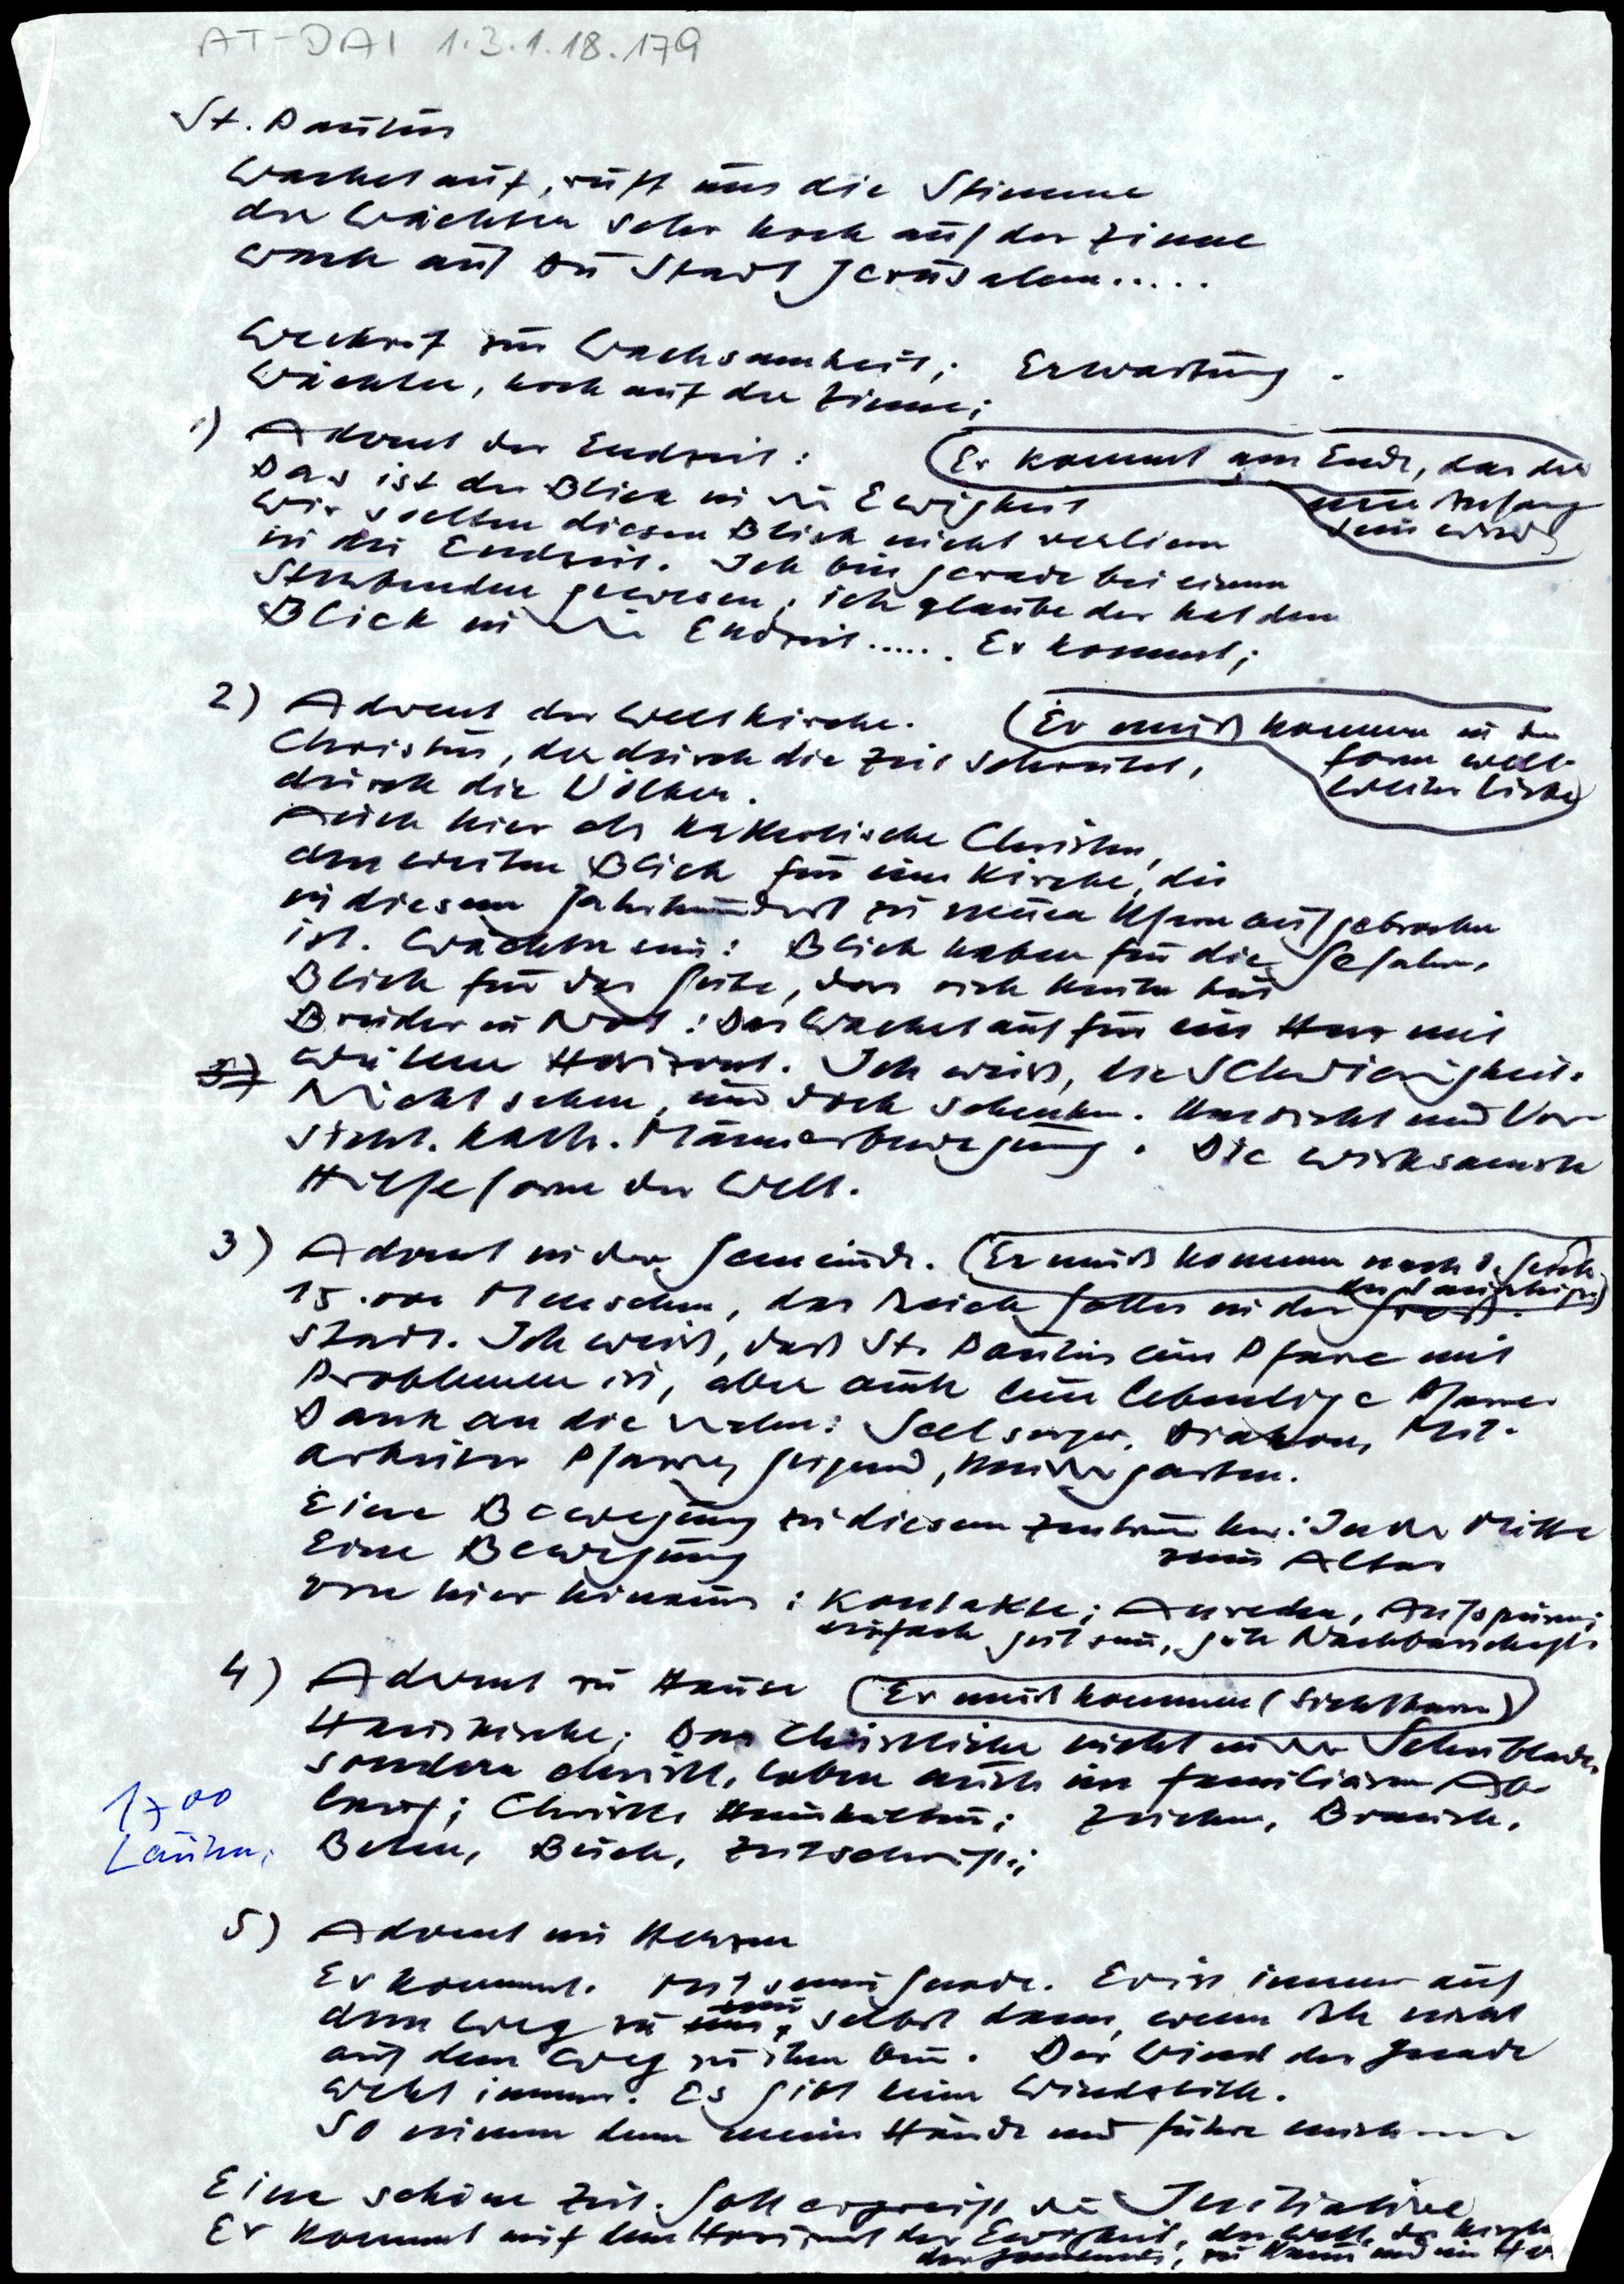 AT-DAI 1.3.1.18.179
St. Paulus
Wachet auf, ruft uns die Stimme
der Wächter sehr hoch auf der Zinne
wach auf du Stadt Jerusalem.....
Weckruf zur Wachsamkeit; Erwartung.
Wächter, hoch auf der Zinne;
1) Advent der Endzeit: (Er kommt am Ende, das der
neue Anfang
sein wird)
Das ist der Blick in die Ewigkeit
Wir sollten diesen Blick nicht verlieren
in die Endzeit. Ich bin gerade bei einem
Sterbenden gewesen; ich glaube der hat den
Blick in die Endzeit...... Er kommt;
2) Advent der Weltkirche. (Er muß kommen in der
Form welt-
weiter Liebe)
Christus, der durch die Zeit schreitet,
durch die Völker.
Auch hier als katholische Christen,
den weiten Blick für eine Kirche, die
in diesem Jahrhundert zu neuen Ufern aufgebrochen
ist. Wächter sein: Blick haben für die Gefahr,
Blick für das Gute, das sich heute tut
Bruder in Not: Das Wachet auf für ein Herz mit
3) weitem Horizont. Ich weiß, die Schwierigkeit.
Nicht sehen, und doch schenken. Umsicht und Vor-
sicht. Kath. Männerbewegung. Die wirksamste
Hilfeform der Welt.
3) Advent in der Gemeinde. (Er muß kommen nach d.
15.000 Menschen, das Reich Gottes in der Groß-
stadt. Ich weiß, daß St. Paulus eine Pfarre mit
Problemen ist, aber auch eine lebendige Pfarre.
Dank an die vielen: Seelsorger, Diakon, Mit-
arbeiter Pfarre, Jugend, Kindergarten.
Eine Bewegung zu diesem Zentrum her: In der Mitte
zum Altar
Eine Bewegung
von hier hinaus: Kontakte; Anreden, Aufspüren;
einfach gut sein, gute Nachbarschaft.
4) Advent zu Hause (Er muß kommen (sichtbar))
Hauskirche; Das Christliche nicht in der Schublade,
sondern christl. Leben auch im familiären Ab-
lauf; Christl. Haushaltung; Zeichen, Brauch,
17 00
Läuten, Beten, Buch, Zeitschrift;
5) Advent im Herzen
Er kommt. Mit seiner Gnade. Er ist immer auf
dem Weg zu mir, selbst dann, wenn ich nicht
auf dem Weg zu ihm bin. Der Wind der Gnade
weht immer. Es gibt keine Windstille.
So nimm denn meine Hände und führe mich ----
Eine schöne Zeit. Gott ergreift die Initiative
Er kommt auf dem Horizont der Ewigkeit, der Welt, der Kirche
der Gemeinde, zu Hause und im Her